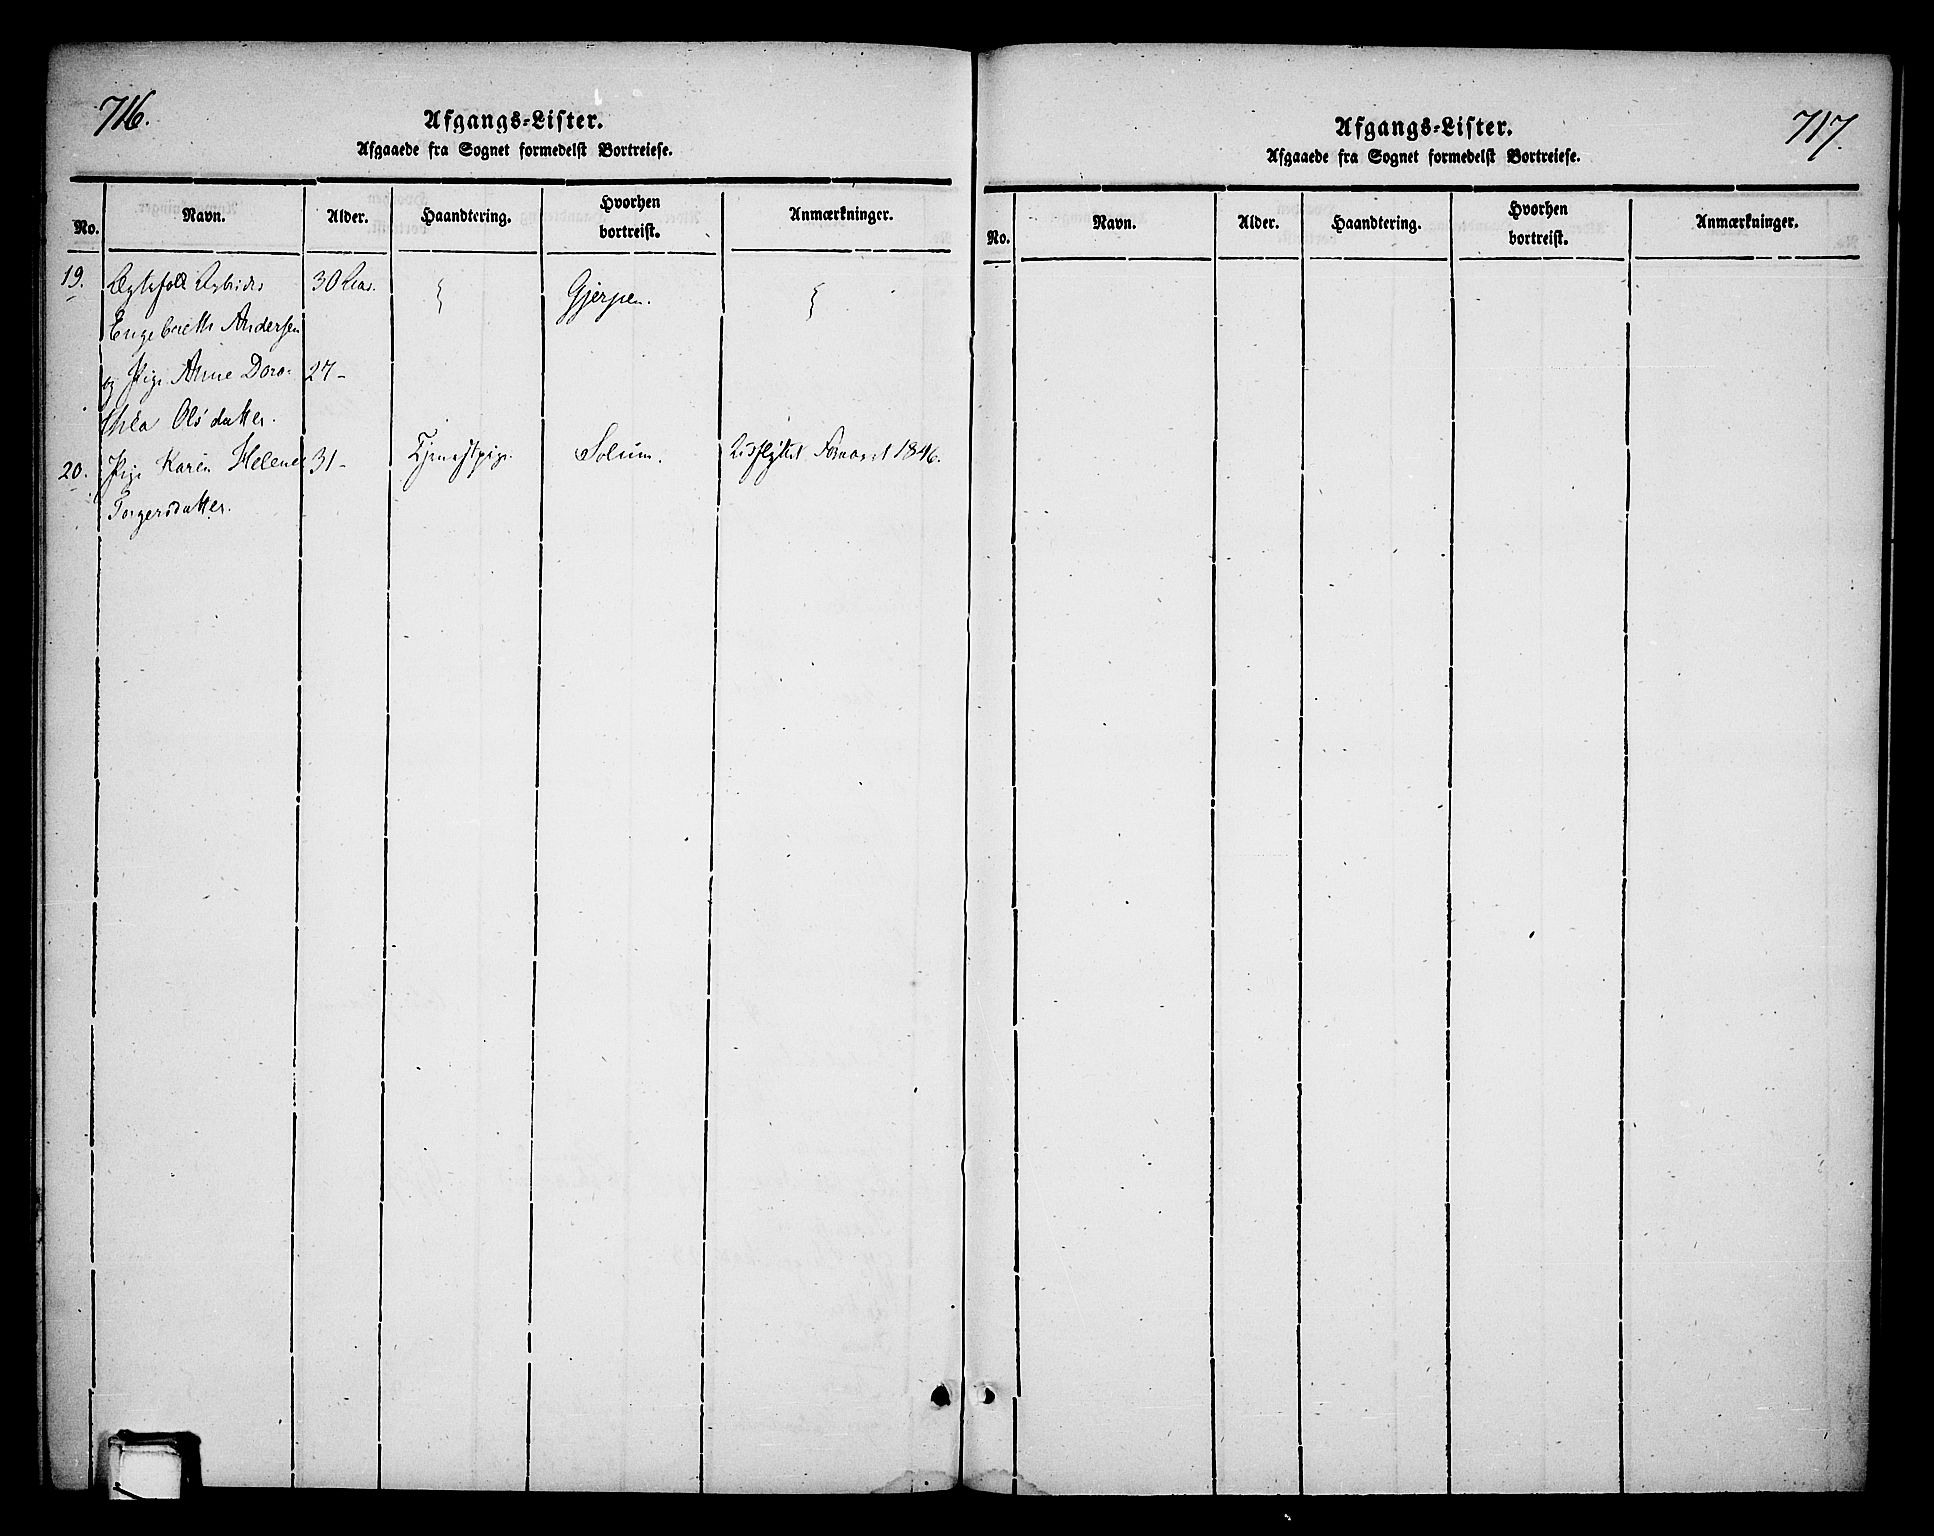 716.
Afgangs-Lister.
Afgaaede fra Sognet formedelst Bortreiese.
No. Navn. Alder. Haandtering. Hvorhen bortreist. Anmærkninger.
19. Ægtefolk 30 Aar. Gjerpen.
Engebreth Andersen
og Pige Anne Doro- 27 -
thea Olsdatter.
20. Pige Karen Helene 31 - Tjenestpige. Solum. Udflyttet Foraaret 1846.
Torgersdatter.
717.
Afgangs-Lister.
Afgaaede fra Sognet formedelst Bortreiese.
No. Navn. Alder. Haandtering. Hvorhen bortreist. Anmærkninger.